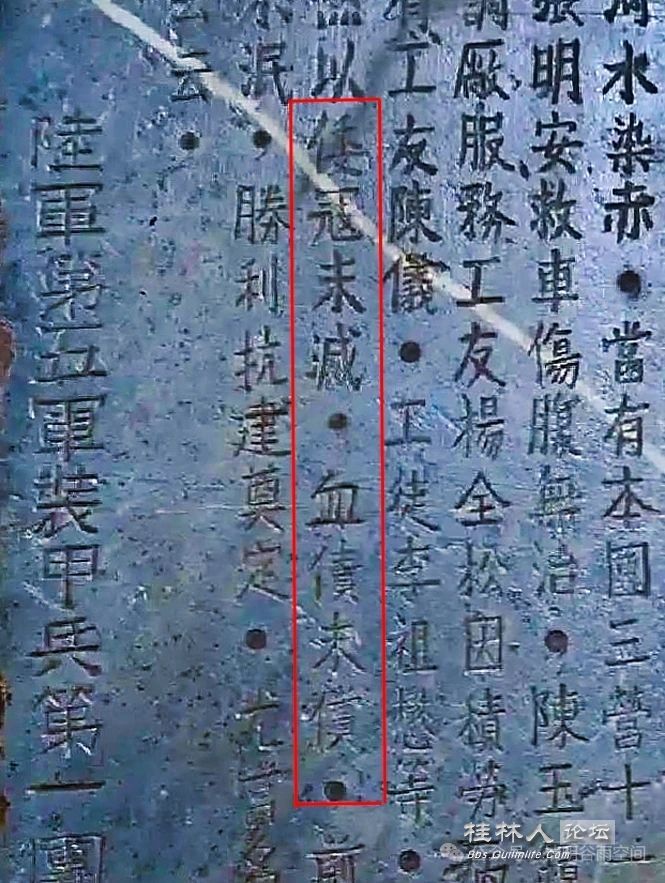 河水染赤•當有本團三營十
張明安救車傷腹無治•陳玉
調廠服務工友楊全松因積勞
有工友陳儀•工徒李祖懋等•
然以倭寇未滅•血債未償•前
不泯•勝利抗建奠定•
云•
陸軍第五軍裝甲兵第一團
桂林人论坛
Bbs.Guilinlife.Com
谷雨空间